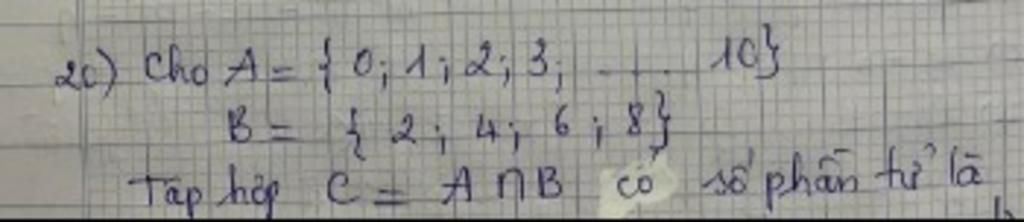 20) Cho A = { 0; 1; 2; 3; ..... 10}
B = { 2; 4; 6; 8}
Tập hợp C = A ∩ B có số phần tử là